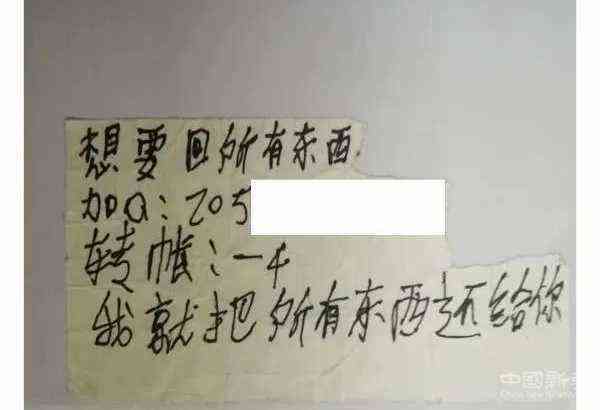 想要回所有东西
加Q：205
转帐：一千
我就把所有东西还给你
中國新